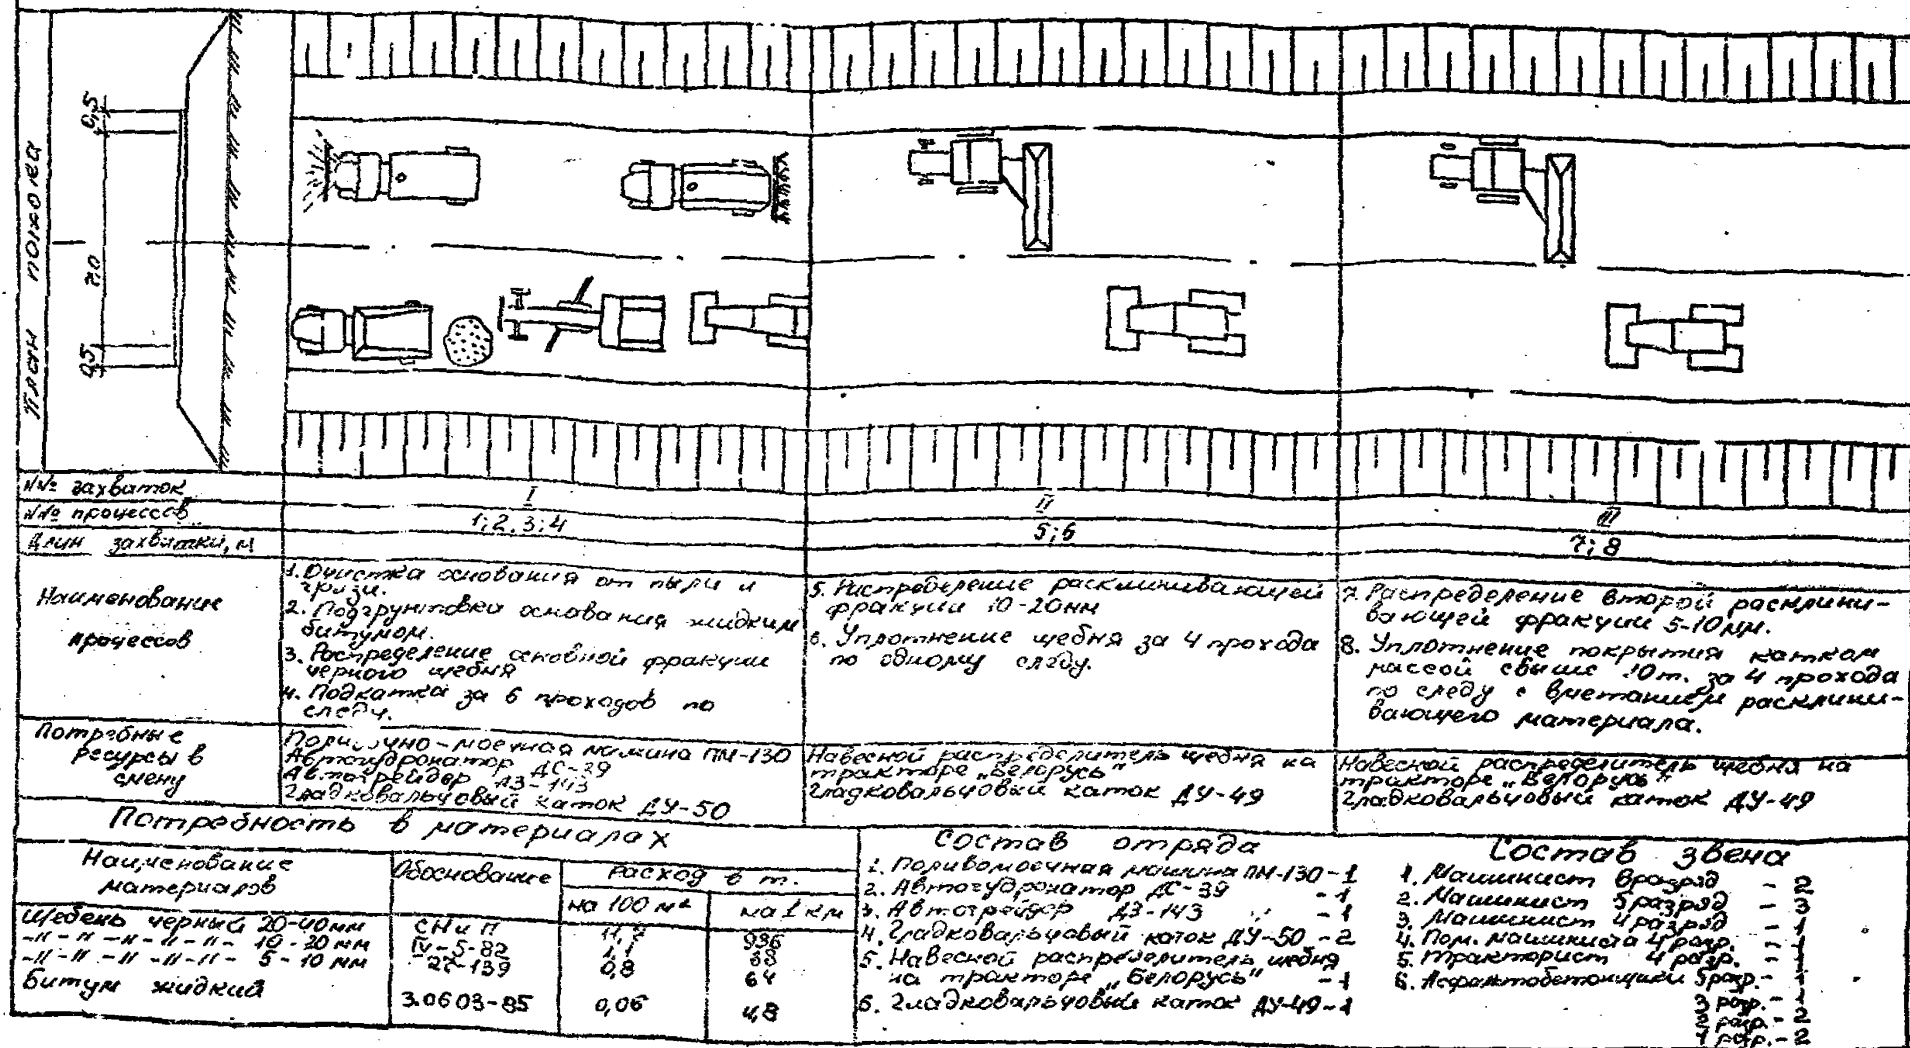 План потока
0,5
7,0
0,5
№№ захваток
I
II
III
№№ процессов
1; 2, 3; 4
5; 6
7; 8
Длин захватки, м
Наименование
процессов
1. Очистка основания от пыли и
грязи.
2. Подгрунтовка основания жидким
битумом.
3. Распределение основной фракции
черного щебня
4. Подкатка за 6 проходов по
следу.
5. Распределение расклинивающей
фракции 10-20мм
6. Уплотнение щебня за 4 прохода
по одному следу.
7. Распределение второй расклини-
вающей фракции 5-10 мм.
8. Уплотнение покрытия катком
массой свыше 10 т. за 4 прохода
по следу с вметанием расклини-
вающего материала.
Потребные
ресурсы в
смену
Поливочно-моечная машина ПМ-130
Автогудронатор ДС-39
Автогрейдер ДЗ-143
Гладковальцовый каток ДУ-50
Навесной распределитель щебня на
тракторе „Белорусь"
Гладковальцовый каток ДУ-49
Навесной распределитель щебня на
тракторе „Белорусь"
Гладковальцовый каток ДУ-49
Потребность в материалах
Наименование
материалов
Обоснование
Расход в т.
на 100 м²
на 1 км
Щебень черный 20-40 мм
СНиП
936
-"- -"- -"- -"- -"- 10-20 мм
IV-5-82
1,1
88
-"- -"- -"- -"- -"- 5-10 мм
27-139
0,8
64
Битум жидкий
3.06 03-85
0,06
4,8
Состав отряда
1. Поливомоечная машина ПМ-130-1
2. Автогудронатор ДС-39 -1
3. Автогрейдер ДЗ-143 -1
4. Гладковальцовый каток ДУ-50 -2
5. Навесной распределитель щебня
на тракторе „Белорусь" -1
6. Гладковальцовый каток ДУ-49-1
Состав звена
1. Машинист 6разряд - 2
2. Машинист 5разряд - 3
3. Машинист 4разряд - 1
4. Пом. машиниста 4разр. - 1
5. Тракторист 4 разр. - 1
6. Асфальтобетонщики 5разр. - 1
3 разр. - 1
2 разр. - 2
1 разр. - 2